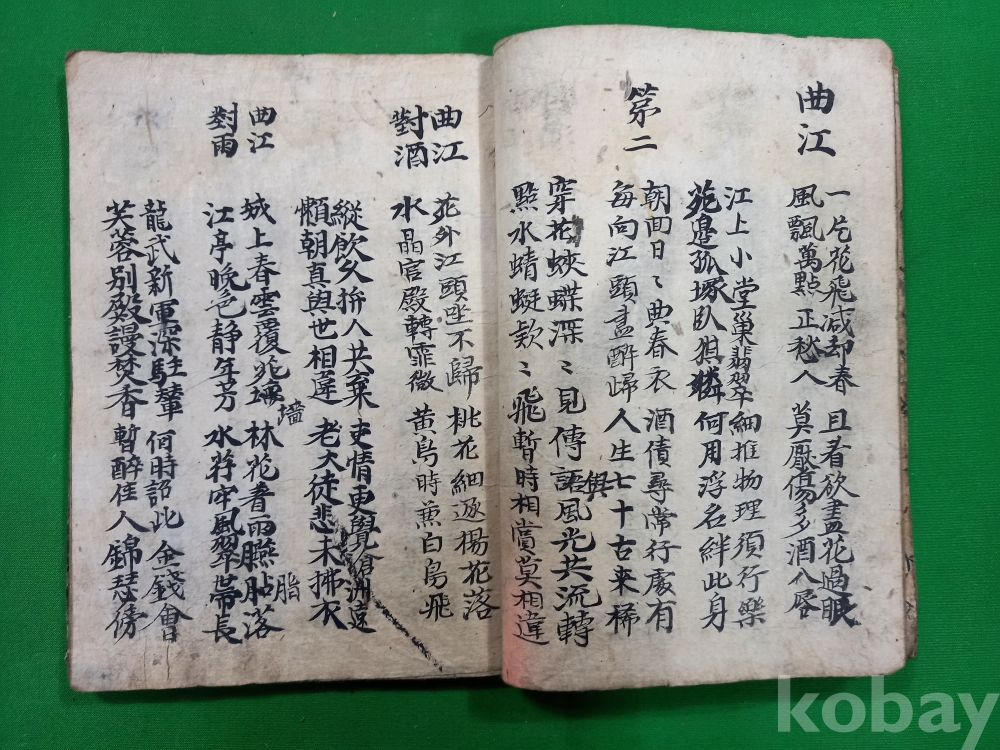 曲江
一片花飛减却春 且看欲盡花過眼
風飄萬點正愁人 莫厭傷多酒入唇
江上小堂巢翡翠 細推物理須行樂
苑邊孤塚臥猉獜 何用浮名絆此身
第二
朝回日〻曲春衣 酒債尋常行處有
每向江頭盡醉歸 人生七十古来稀
穿花蛺蝶深〻見 傳語風光共流轉
與
點水蜻蜓欵〻飛 暫時相賞莫相違
曲江
對酒
苑外江頭坐不歸 桃花細逐楊花落
水晶宮殿轉霏微 黃鳥時蕉白鳥飛
縱飲久拚人共棄 吏情更覺滄洲遠
懶朝真與世相違 老大徒悲未拂衣
曲江
對雨
城上春雲覆苑墻 林花着雨臙脂落
墻
脂
江亭晚色静年芳 水荇牽風翠帶長
龍武新軍深駐輦 何時詔此金錢會
芙蓉別殿謾焚香 暫醉佳人錦瑟傍
kobay